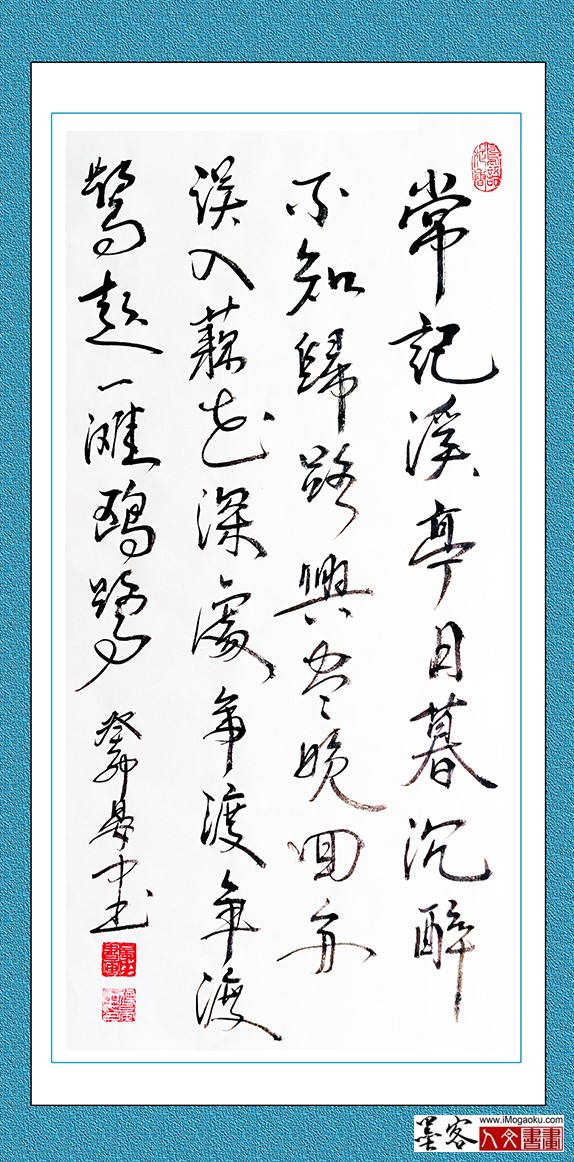 常記溪亭日暮沉醉
不知歸路興尽晚回舟
误入藕花深處争渡争渡
驚起一滩鸥鹭
癸卯 中书
www.iMogaoku.com
墨客 人文書畫